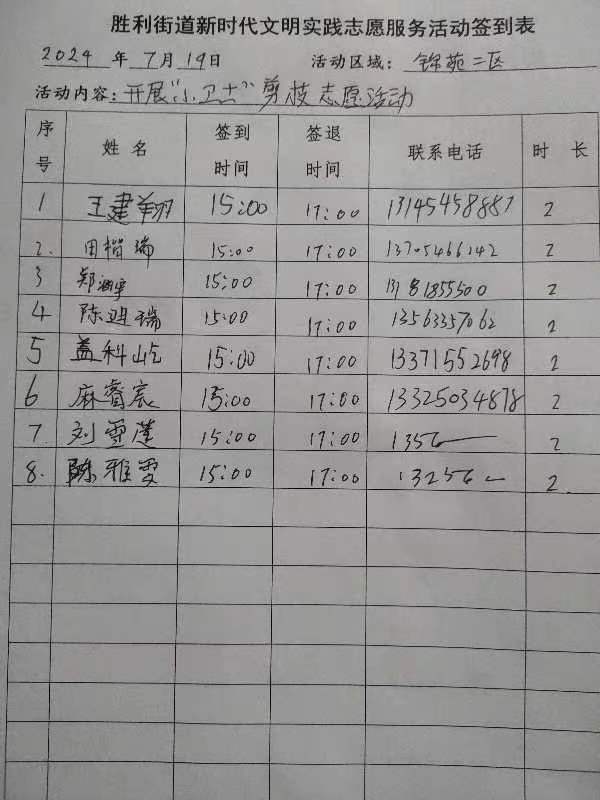 胜利街道新时代文明实践志愿服务活动签到表
2024 年 7月 19日 活动区域: 锦苑二区
活动内容: 开展"小卫士"剪枝志愿活动
序号 姓名 签到时间 签退时间 联系电话 时长
1 王建翔 15:00 17:00 13145458887 2
2. 田楷瑞 15:00 17:00 13705466142 2
3 郑 15:00 17:00 13181855500 2
4 陈进瑞 15:00 17:00 13563357062 2
5 盖科屹 15:00 17:00 13371552698 2
6 麻睿宸 15:00 17:00 13325034878 2
7 刘雪莲 15:00 17:00 1356 2
8. 陈雅雯 15:00 17:00 13256 2